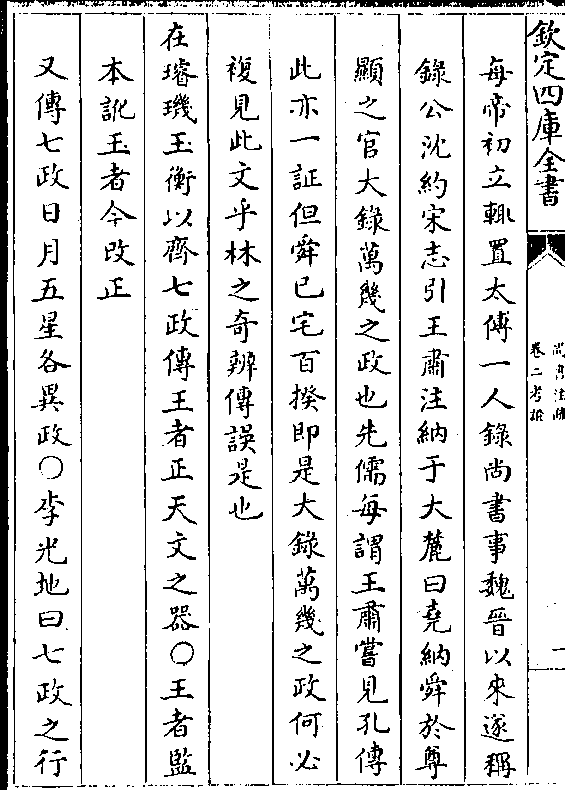 欽定四庫全書
尚書注疏
卷二考證
一
每帝初立輒置太傅一人錄尚書事魏晉以來遂稱
錄公沈約宋志引王肅注納于大麓曰堯納舜於尊
顯之官大錄萬幾之政也先儒每謂王肅嘗見孔傳
此亦一証但舜已宅百揆即是大錄萬幾之政何必
複見此文乎林之奇辨傳誤是也
在璿璣玉衡以齊七政傳王者正天文之器○王者監
本訛玉者今改正
又傳七政日月五星各異政○李光地曰七政之行